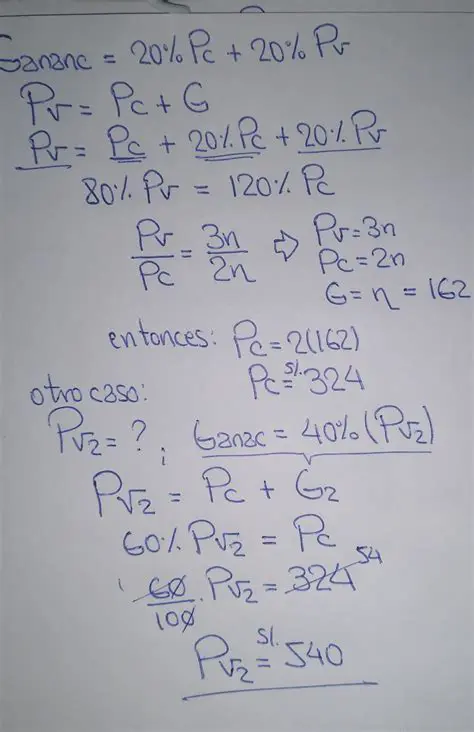 Gananc = 20% Pc + 20% Pv
Pv = Pc + G
Pv = Pc + 20% Pc + 20% Pv
80% Pv = 120% Pc
Pv/Pc = 3n/2n ⇨ Pv = 3n
Pc = 2n
G = n = 162
entonces: Pc = 2(162)
Pc = S/. 324
otro caso:
Pv2 = ? ; Ganac = 40% (Pv2)
Pv2 = Pc + G2
60% Pv2 = Pc
60/100 . Pv2 = 324 54
Pv2 = S/. 540